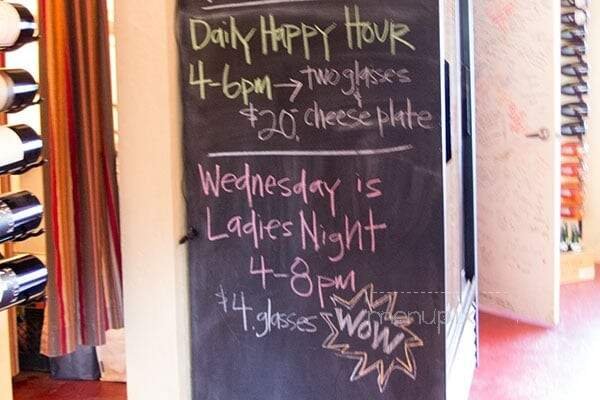 Daily Happy Hour
4-6pm → two glasses
$20. & cheese plate
Wednesday is
Ladies Night
4-8pm
$4. glasses WOW
menupix